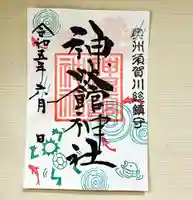 奥州須賀川総鎮守
神炊館神社
令和五年六月 日